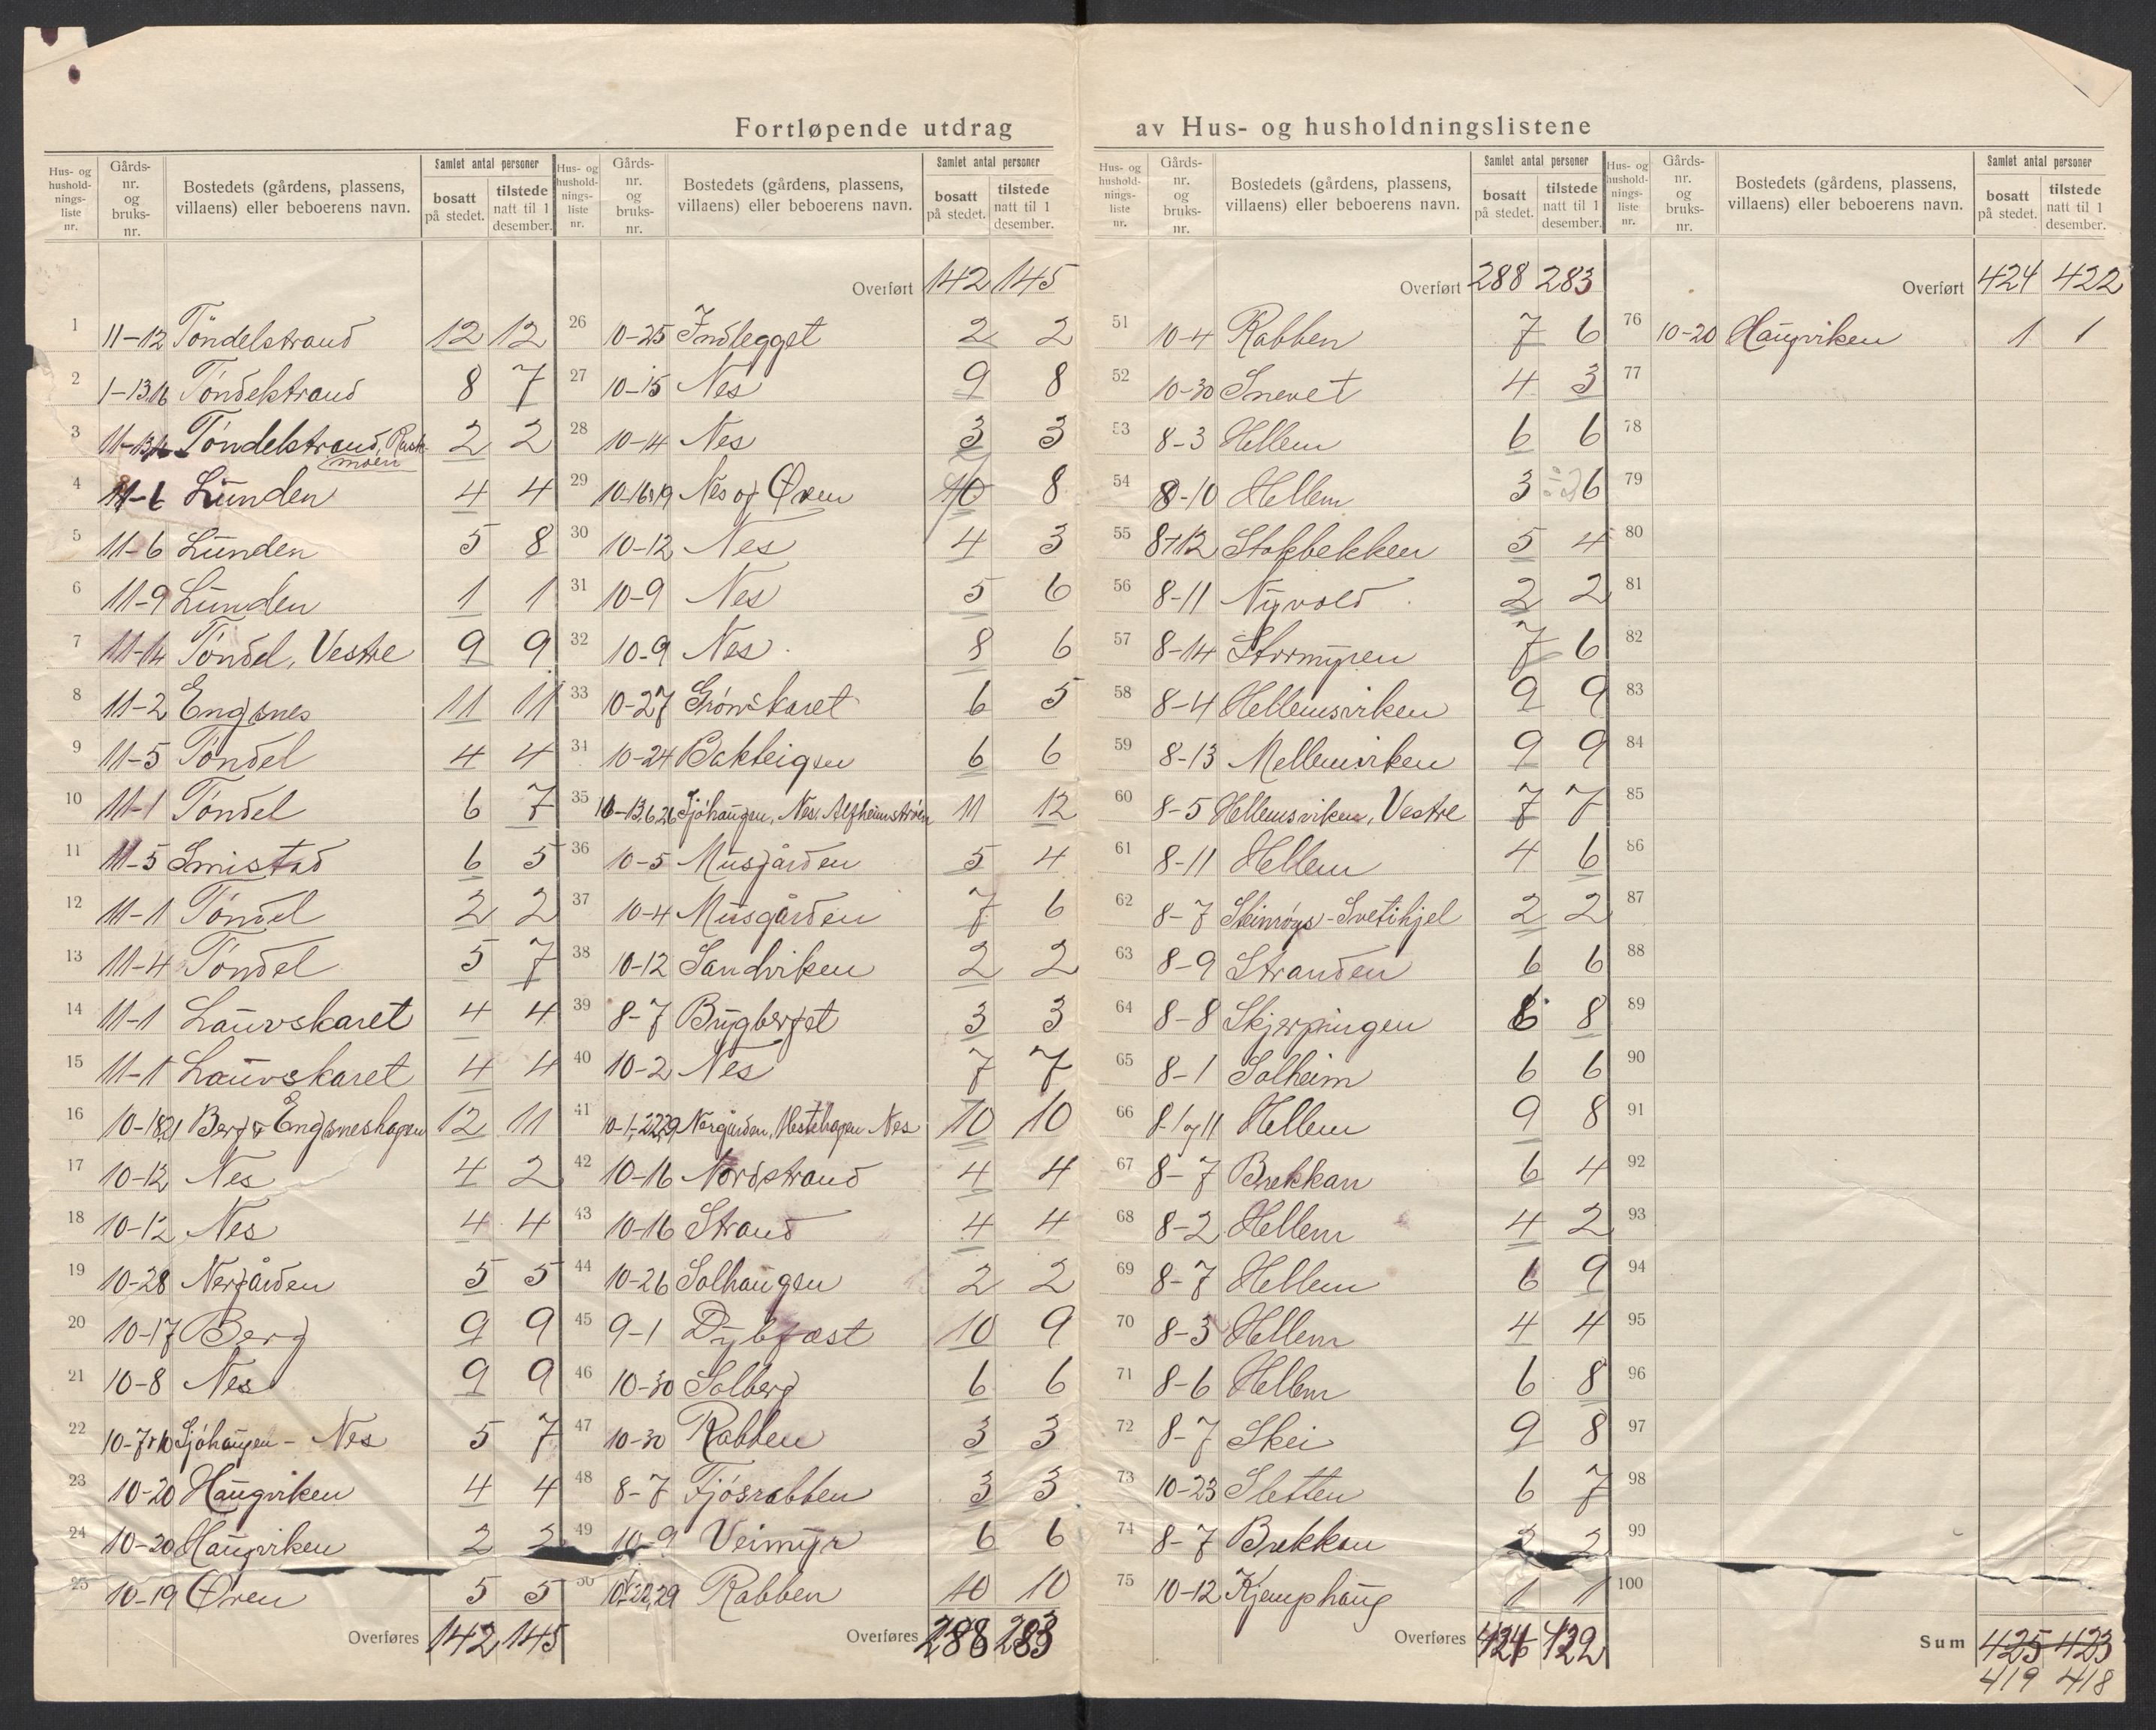 Fortløpende utdrag av Hus- og husholdningslistene
Hus- og hushold-nings-liste nr. Gårds-nr. og bruks-nr. Bostedets (gårdens, plassens, villaens) eller beboerens navn. Samlet antal personer bosatt på stedet. tilstede natt til 1 desember.
1 11-12 Töndelstrand 12 12
2 1-13,16 Töndelstrand 8 7
3 Töndelstrand, moen 2 2
4 Lunden 4 4
5 11-6 Lunden 5 8
6 11-9 Lunden 1 1
7 11-14 Töndel, Vestre 9 9
8 11-2 Engsnes 11 11
9 11-5 Töndel 4 4
10 11-1 Töndel 6 7
11 11-5 Smistad 6 5
12 11-1 Töndel 2 2
13 11-4 Töndel 5 7
14 11-1 Lauvskaret 4 4
15 11-1 Lauvskaret 4 4
16 10-18,21 Berg & Engsneshagen 12 11
17 10-12 Nes 4 2
18 10-12 Nes 4 4
19 10-28 Nergården 5 5
20 10-17 Berg 9 9
21 10-8 Nes 9 9
22 10-7&10 Sjöhaugen - Nes 5 7
23 10-20 Haugviken 4 4
24 10-20 Haugviken 2 2
25 10-19 Øren 5 5
Overføres 142 145
Hus- og hushold-nings-liste nr. Gårds-nr. og bruks-nr. Bostedets (gårdens, plassens, villaens) eller beboerens navn. Samlet antal personer bosatt på stedet. tilstede natt til 1 desember.
Overført 142 145
26 10-25 Indlegget 2 2
27 10-15 Nes 9 8
28 10-14 Nes 3 3
29 10-16&19 Nes og Øren 10 8
30 10-12 Nes 4 3
31 10-9 Nes 5 6
32 10-9 Nes 8 6
33 10-27 Grönskaret 6 5
34 10-24 Bakteigen 6 6
35 10-13,6,26 Sjöhaugen, Nes, 11 12
36 10-5 Musgården 5 4
37 10-4 Musgården 7 6
38 10-12 Sandviken 2 2
39 8-7 Bygberget 3 3
40 10-2 Nes 7 7
41 10-1,22,29 Norgården, Hestehagen Nes 10 10
42 10-16 Nordstrand 4 4
43 10-16 Strand 4 4
44 10-26 Solhaugen 2 2
45 9-1 Dybfest 10 9
46 10-30 Solberg 6 6
47 10-30 Rabben 3 3
48 8-7 Fjösrabben 3 3
49 10-9 Veimyr 6 6
50 Rabben 10 10
Overføres 288 283
Hus- og hushold-nings-liste nr. Gårds-nr. og bruks-nr. Bostedets (gårdens, plassens, villaens) eller beboerens navn. Samlet antal personer bosatt på stedet. tilstede natt til 1 desember.
Overført 288 283
51 10-4 Rabben 7 6
52 10-30 Snevet 4 3
53 8-3 Hellem 6 6
54 8-10 Hellem 3 6
55 8-12 Stokbekken 5 4
56 8-11 Nyvold 2 2
57 8-14 Stormyren 7 6
58 8-4 Hellemsviken 9 9
59 8-13 Mellemviken 9 9
60 8-5 Hellemsviken, Vestre 7 7
61 8-11 Hellem 4 6
62 8-7 2 2
63 8-9 Stranden 6 6
64 8-8 Skjerpingen 6 8
65 8-1 Solheim 6 6
66 8-1og11 Hellem 9 8
67 8-7 Brekkan 6 4
68 8-2 Hellem 4 2
69 8-7 Hellem 6 9
70 8-3 Hellem 4 4
71 8-6 Hellem 6 8
72 8-7 Skei 9 8
73 10-23 Sletten 6 7
74 8-7 Brekkan 2 2
75 10-12 Kjemphaug 1 1
Overføres 424 422
Hus- og hushold-nings-liste nr. Gårds-nr. og bruks-nr. Bostedets (gårdens, plassens, villaens) eller beboerens navn. Samlet antal personer bosatt på stedet. tilstede natt til 1 desember.
Overført 424 422
76 10-20 Haugviken 1 1
77
78
79
80
81
82
83
84
85
86
87
88
89
90
91
92
93
94
95
96
97
98
99
100
Sum 425 423
419 418